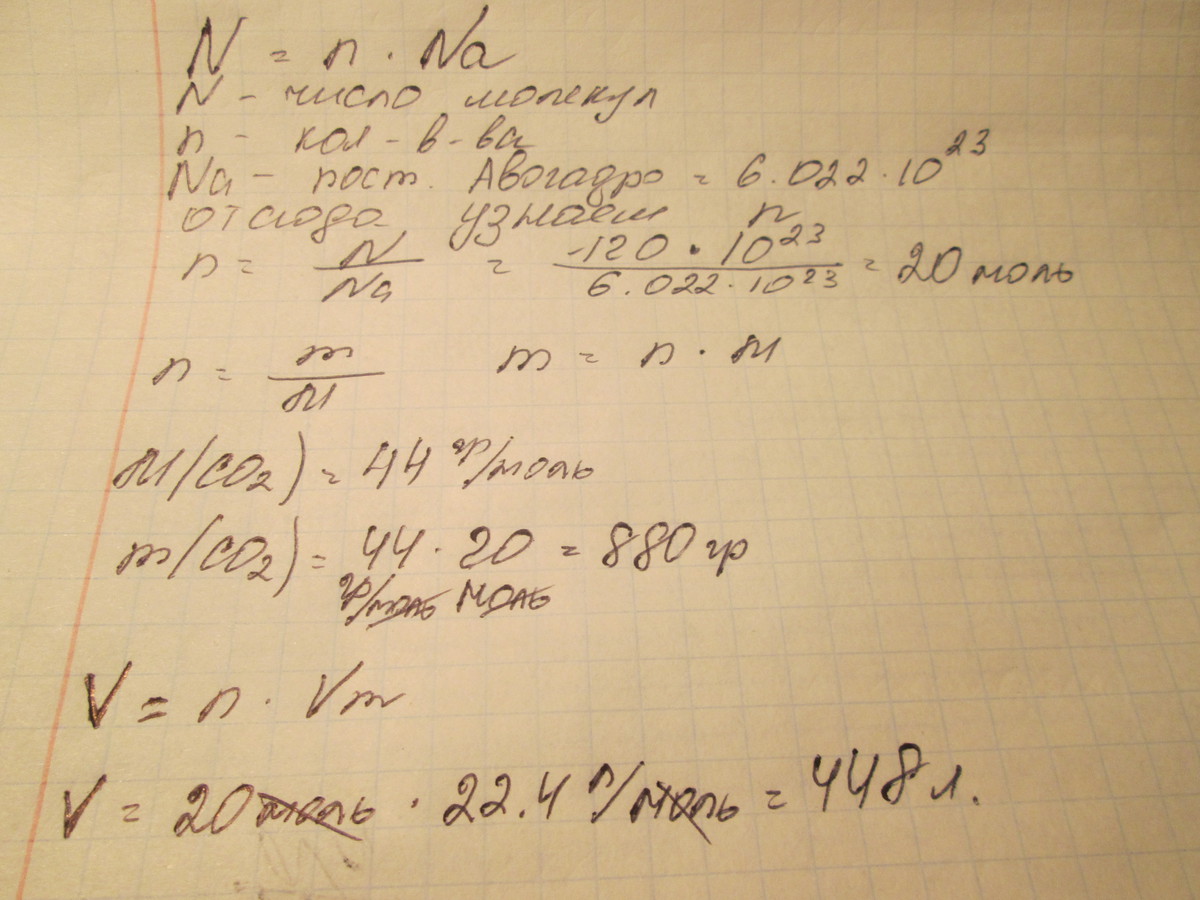 N = n · Na
N - число молекул
n - кол-в-ва
Na - пост. Авогадро = 6.022 · 10²³
отсюда узнаем n
n = N/Na = 120 · 10²³/6.022 · 10²³ = 20 моль
n = m/M m = n · M
M(CO₂) = 44 гр/моль
m(CO₂) = 44 · 20 = 880 гр
гр/моль моль
V = n · Vm
V = 20 моль · 22.4 л/моль = 448 л.